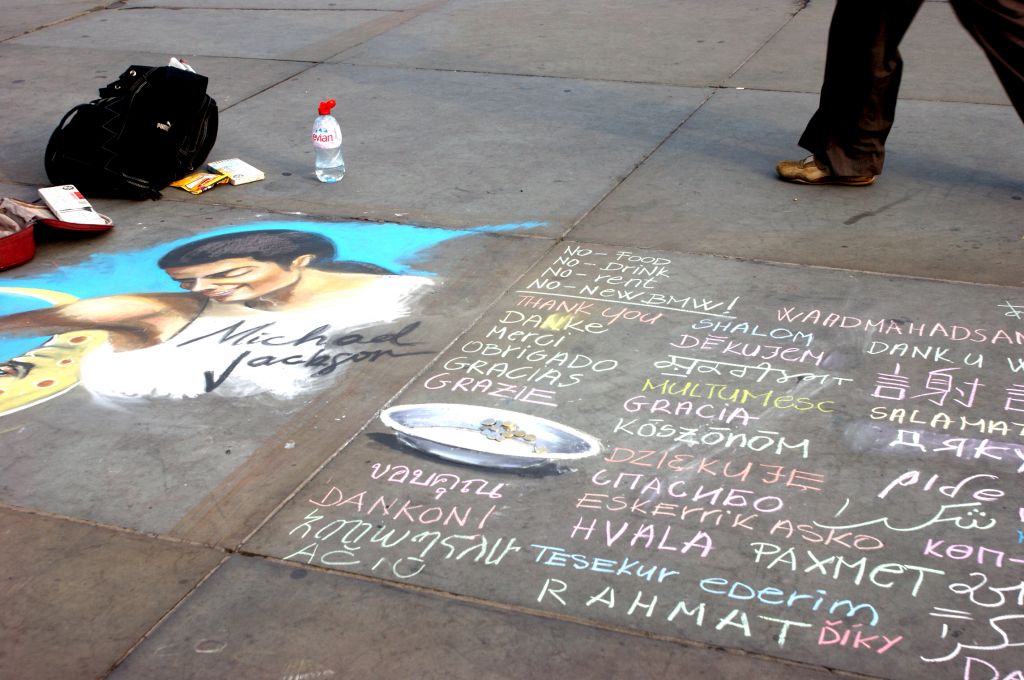 PUMA
evian
Michael
Jackson
No-FOOD
No-DRiNK
No-rent
No-NeW-BMW!
THANK YOU
DANKE
Merci
OBRiGADO
GRACiAS
GRAZiE
ขอบคุณ
DANKON!
AČIŪ
SHALOM
DĚKUJEM
MULTUMESC
GRACIA
KÖSZÖNÖM
DZIEKUJE
СПАСИБО
ESKERRiK ASKO
HVALA
TESEKUr ederim
RAHMAT
WAADMAHADSAN
DANK U W
SALAMAT
ДЯКУ
شكراً
PAXMET
ĎÍKY
DA